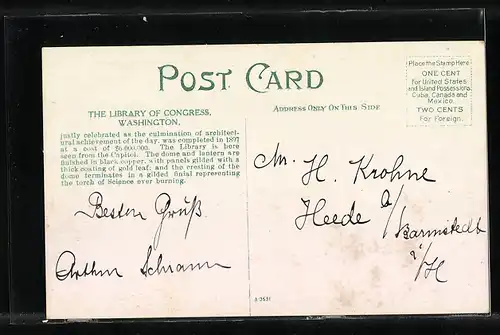 POST CARD
THE LIBRARY OF CONGRESS,
WASHINGTON,
justly celebrated as the culmination of architect-
ural achievement of the day, was completed in 1897
at a cost of $6,000,000. The Library is here
seen from the Capitol. The dome and lantern are
finished in black copper, with panels gilded with a
thick coating of gold leaf; and the cresting of the
dome terminates in a gilded finial representing
the torch of Science ever burning.
ADDRESS ONLY ON THIS SIDE
Place the Stamp Here
ONE CENT
For United States
and Island Possessions,
Cuba, Canada and
Mexico.
TWO CENTS
For Foreign.
Besten Gruß
Arthur Schramm
H. Krohne
Heede a/
Barmstedt
i/H